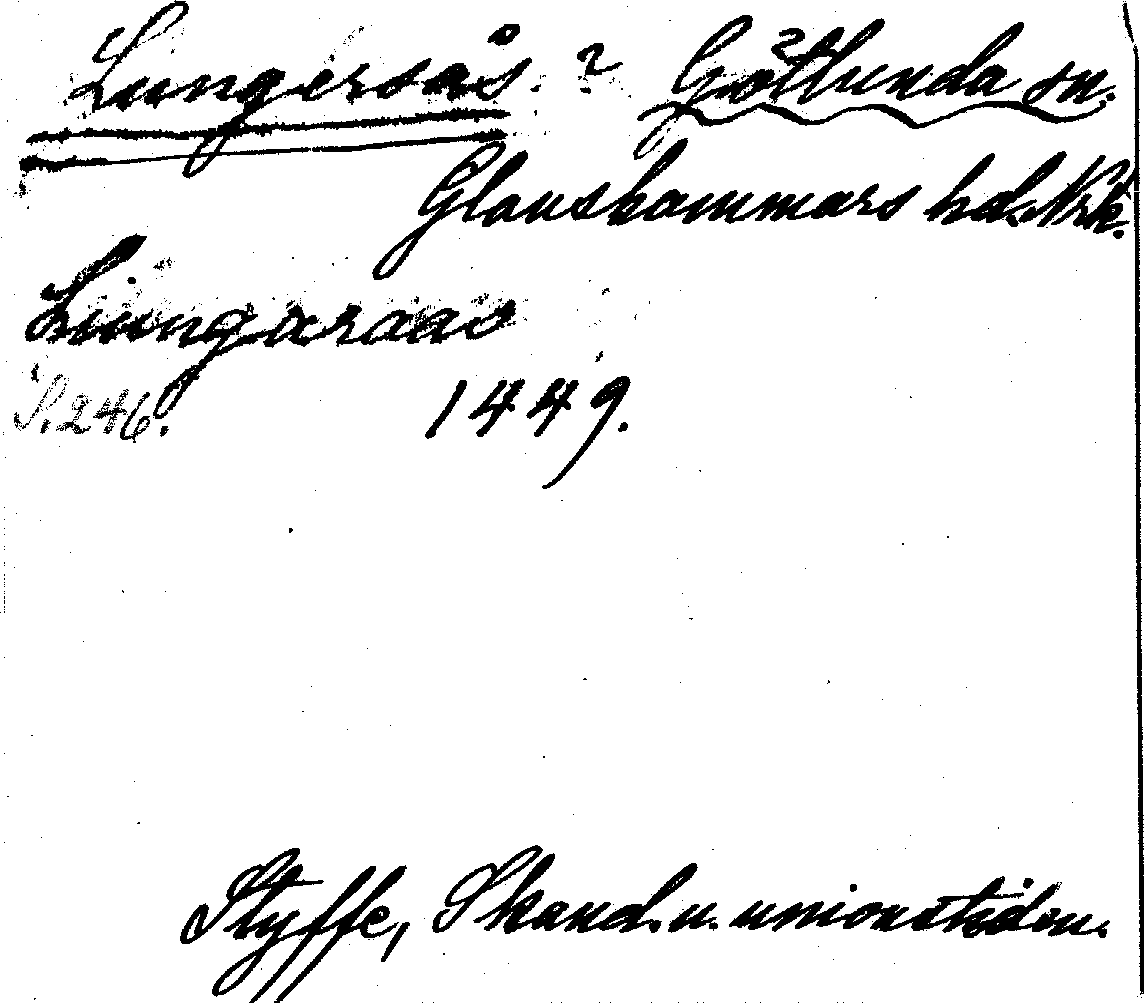 Lungersås. ? Götlunda sn.
Glanshammars hd. Nrk.
Liungaraas
S. 246. 1449.
Styffe, Skand. u. unionstiden.